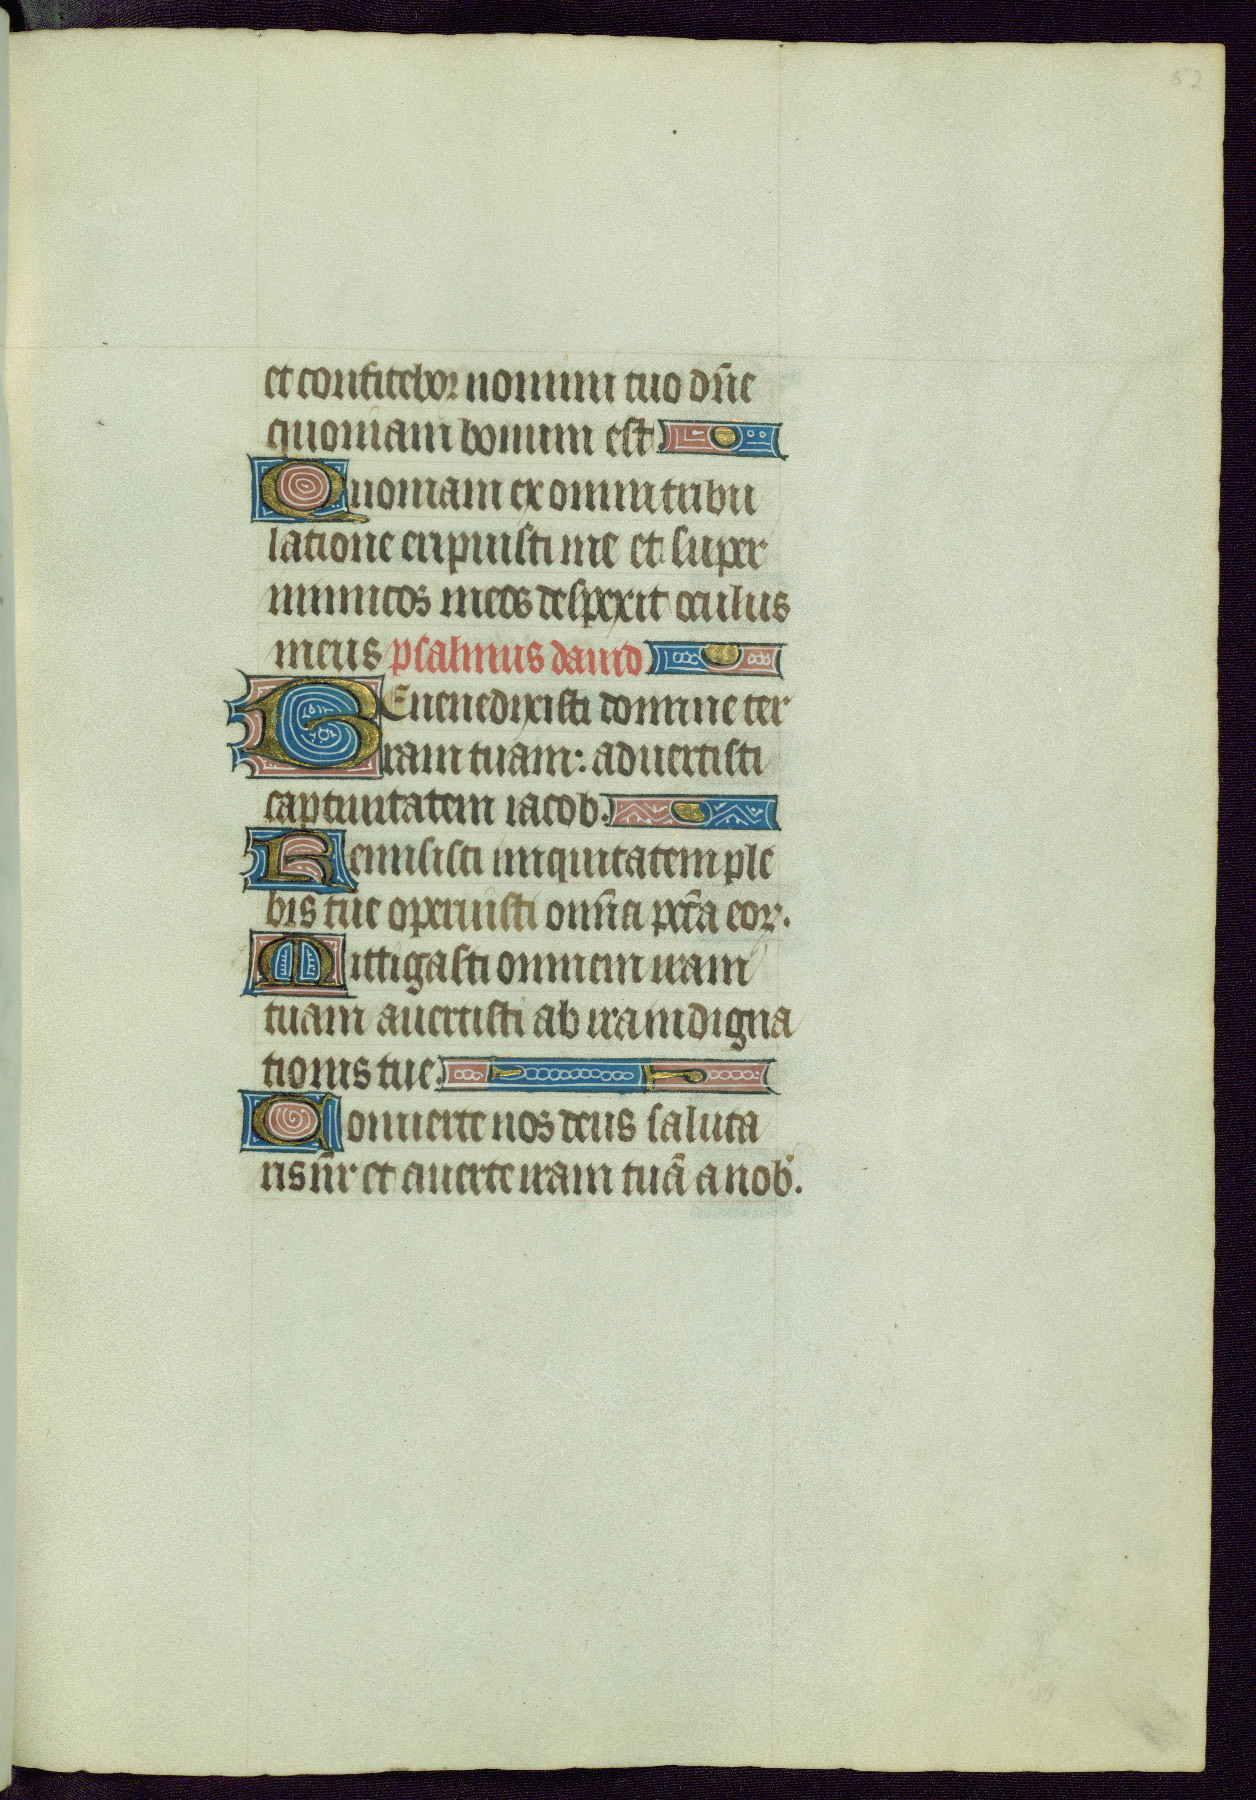 et confitebor nomini tuo dñe
quoniam bonum est.
Quoniam ex omni tribu
latione eripuisti me et super
inimicos meos despexit oculus
meus psalmus dauid
BEnenedixisti domine ter
ram tuam: aduertisti
captiuitatem iacob.
Remisisti iniquitatem ple
bis tue operuisti om̄ia pctā eoꝝ.
Mittigasti omnem iram
tuam auertisti ab ira indigna
tionis tue.
Conuerte nos deus saluta
ris nr̄ et auerte iram tuā a nob̄.
52